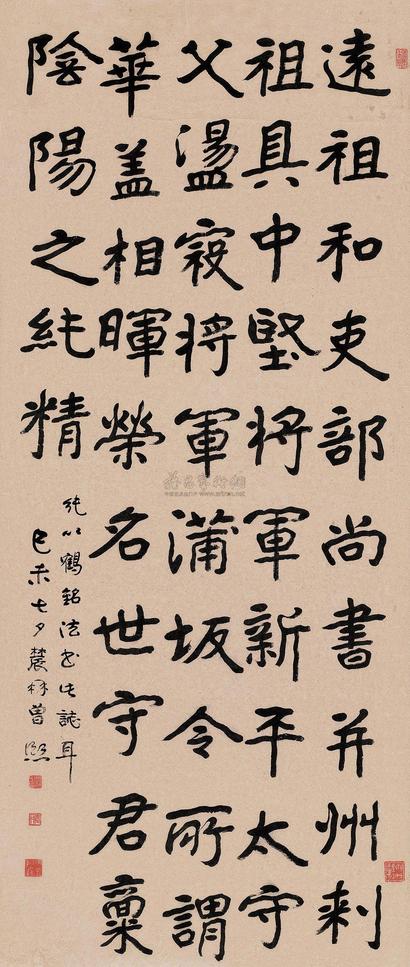 遠祖和吏部尚書并州刺
祖具中堅将軍新平太守
父盪寇将軍蒲坂令所謂
華盖相暉榮名世守君稟
陰陽之純精
純以鶴銘法書此誌耳
己未七夕農髯曾熙